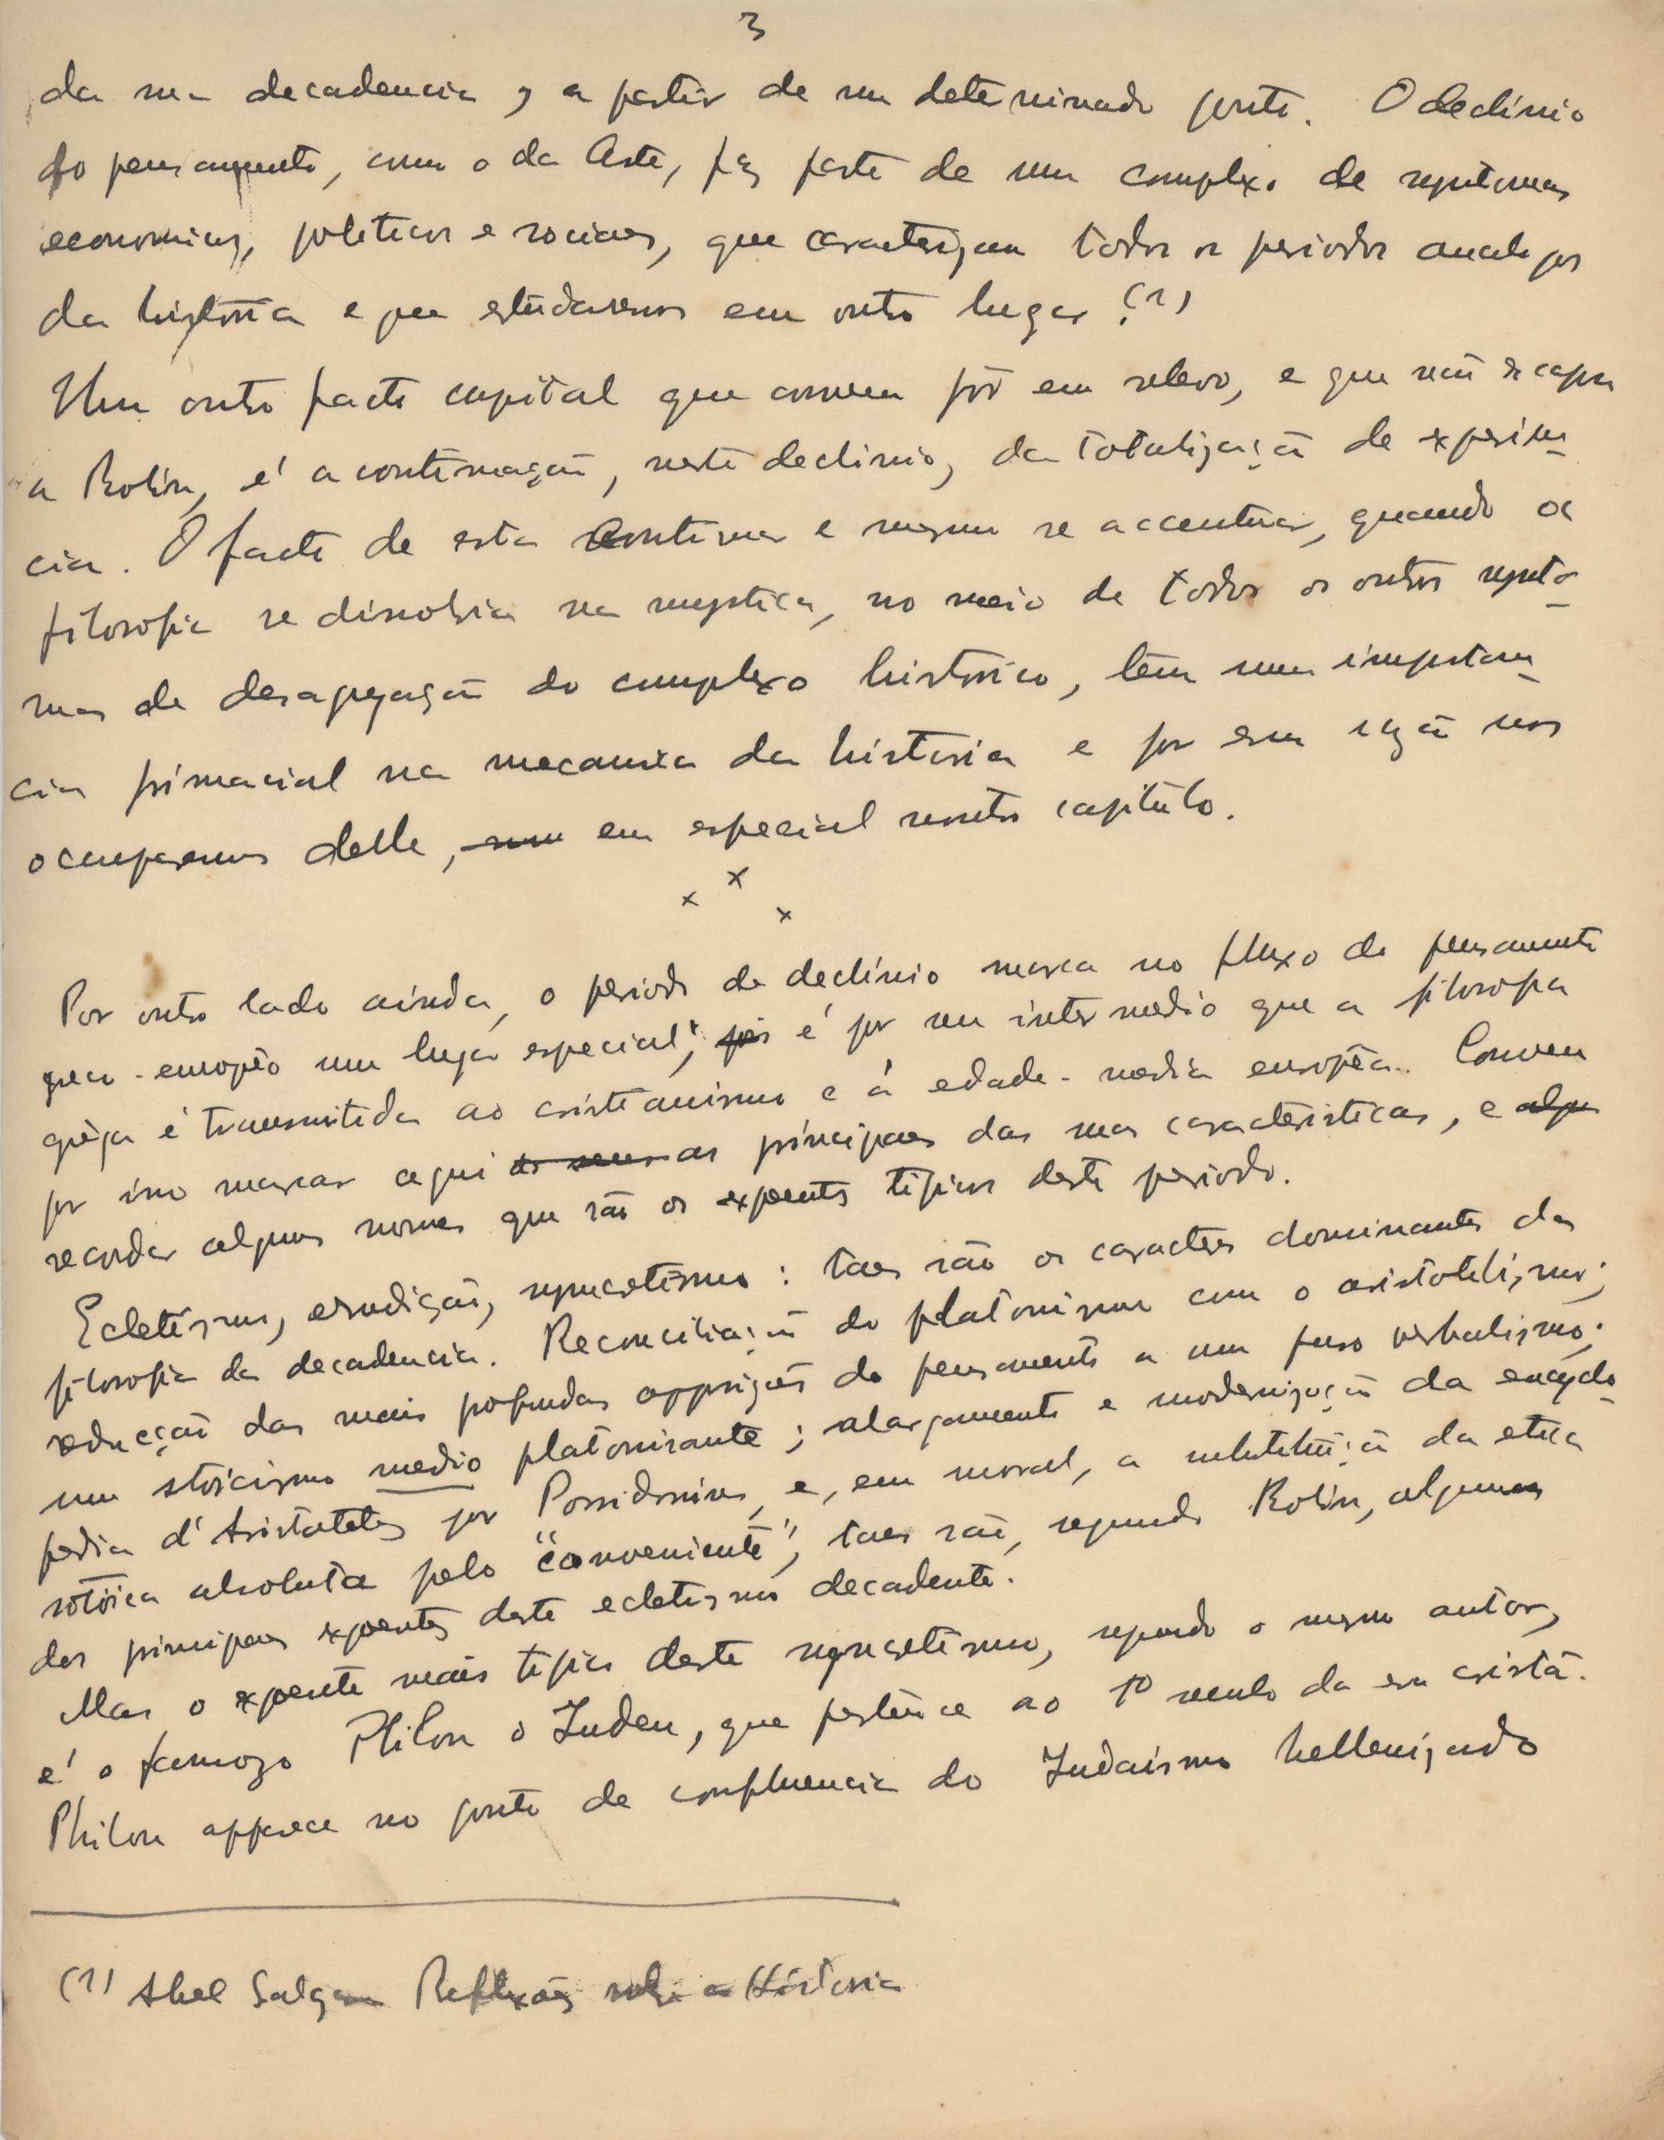 3
da sua decadencia, a partir de um determinado ponto. O declínio
do pensamento, como o da Arte, faz parte de um complexo de symtomas
economicos, politicos e sociaes, que caracterizam todos os periodos analogos
da história e que estudaremos em outro lugar (1)
Um outro facto capital que convem pôr em relevo, e que não escapou
a Robin, é a continuação, neste declinio, da totalização de experien-
cia. O facto de esta continuar e mesmo se accentuar, quando a
filosofia se dissolvia na mystica, no meio de todos os outros symto-
mas de desagregação do complexo historico, tem uma importan-
cia primacial na mecanica da historia e por essa razão nos
occuparemos delle, em especial noutro capitulo.
x x x
Por outro lado ainda, o periodo de declínio marca no fluxo do pensamento
greco-europêo um lugar especial; pois é por seu intermedio que a filosofia
grêga é transmitida ao cristianismo e á edade-media europêa. Convem
por isso marcar aqui as principaes das suas caracteristicas, e
recordar alguns nomes que são os expoentes tipicos deste periodo.
Ecletismo, erudição, syncretismo: taes são os caracteres dominantes da
filosofia da decadencia. Reconciliação do platonismo com o aristotelismo;
reducção das mais profundas opposições do pensamento a um puro verbalismo;
um stoicismo medio platonisante; alargamento e modernização da encyclo-
pedia d'Aristoteles por Possidonius, e, em moral, a substituição da etica
stóica absoluta pelo "conveniente"; taes são, segundo Robin, alguns
dos principaes expoentes deste ecletismo decadente.
Mas o expoente mais tipico deste syncretismo, segundo o mesmo autor,
é o famozo Philon o Judeu, que pertence ao 1º seculo da era cristã.
Philon apparece no ponto de confluencia do Judaísmo hellenizado
(1) Abel Salazar Reflexões sobre a História